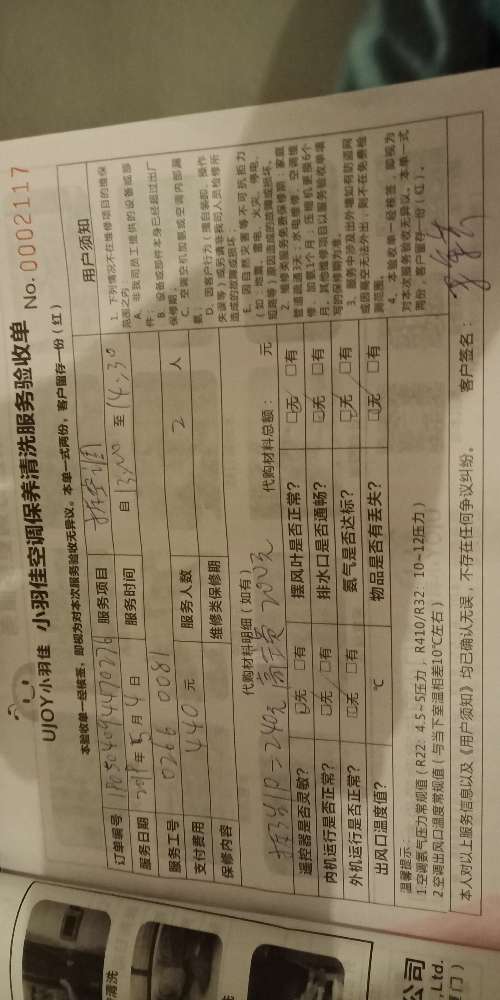 UJOY小羽佳 小羽佳空调保养清洗服务验收单 No. 0002117
本验收单一经核签，即视为对本次服务验收无异议。本单一式两份，客户留存一份（红）
订单编号 服务项目 拆空调
服务日期 年 5 月 4 日 服务时间 自 13:00 至 14:30
服务工号 0266 0081
支付费用 440 元 服务人数 2 人
保修内容 维修类保修期
代购材料明细（如有） 代购材料总额： 元
240元 200元
遥控器是否灵敏？ □无 □有 摆风叶是否正常？ □无 □有
内机运行是否正常？ □无 □有 排水口是否通畅？ □无 □有
外机运行是否正常？ □无 □有 氨气是否达标？ □无 □有
出风口温度值？ ℃ 物品是否有丢失？ □无 □有
用户须知
1. 下列情况不在维修项目的维保
范围之内
A. 非我司员工提供的设备或部
件；
B. 设备或部件本身已经超过出厂
保修期；
C. 空调空机加氨或空调内部漏
氨；
D. 因客户行为（擅自装卸、操作
失误等）或另请非我司人员检修所
造成的故障或损坏；
E. 因自然灾害等不可抗拒力
（如：地震、雷电、火灾、停电、
短路等）原因造成的故障或损坏。
2. 维修类服务免费保修期：家庭
管道疏通3天；水电维修、空调维
修、加氨1个月；压缩机更换6个
月。其他维修项目以服务验收单填
写的保修期为准。
3. 服务中涉及出外墙如有防盗网
或因高空无法外出，则不在免费检
测范围。
4. 本验收单一经核签，即视为
对本次服务验收无异议。本单一式
两份，客户留存一份（红）。
温馨提示：
1.空调氨气压力常规值（R22：4.5~5压力，R410/R32：10-12压力）
2.空调出风口温度常规值（与当下室温相差10℃左右）
本人对以上服务信息以及《用户须知》均已确认无误，不存在任何争议纠纷。 客户签名：
清洗
洗
公司
,Ltd.
门）